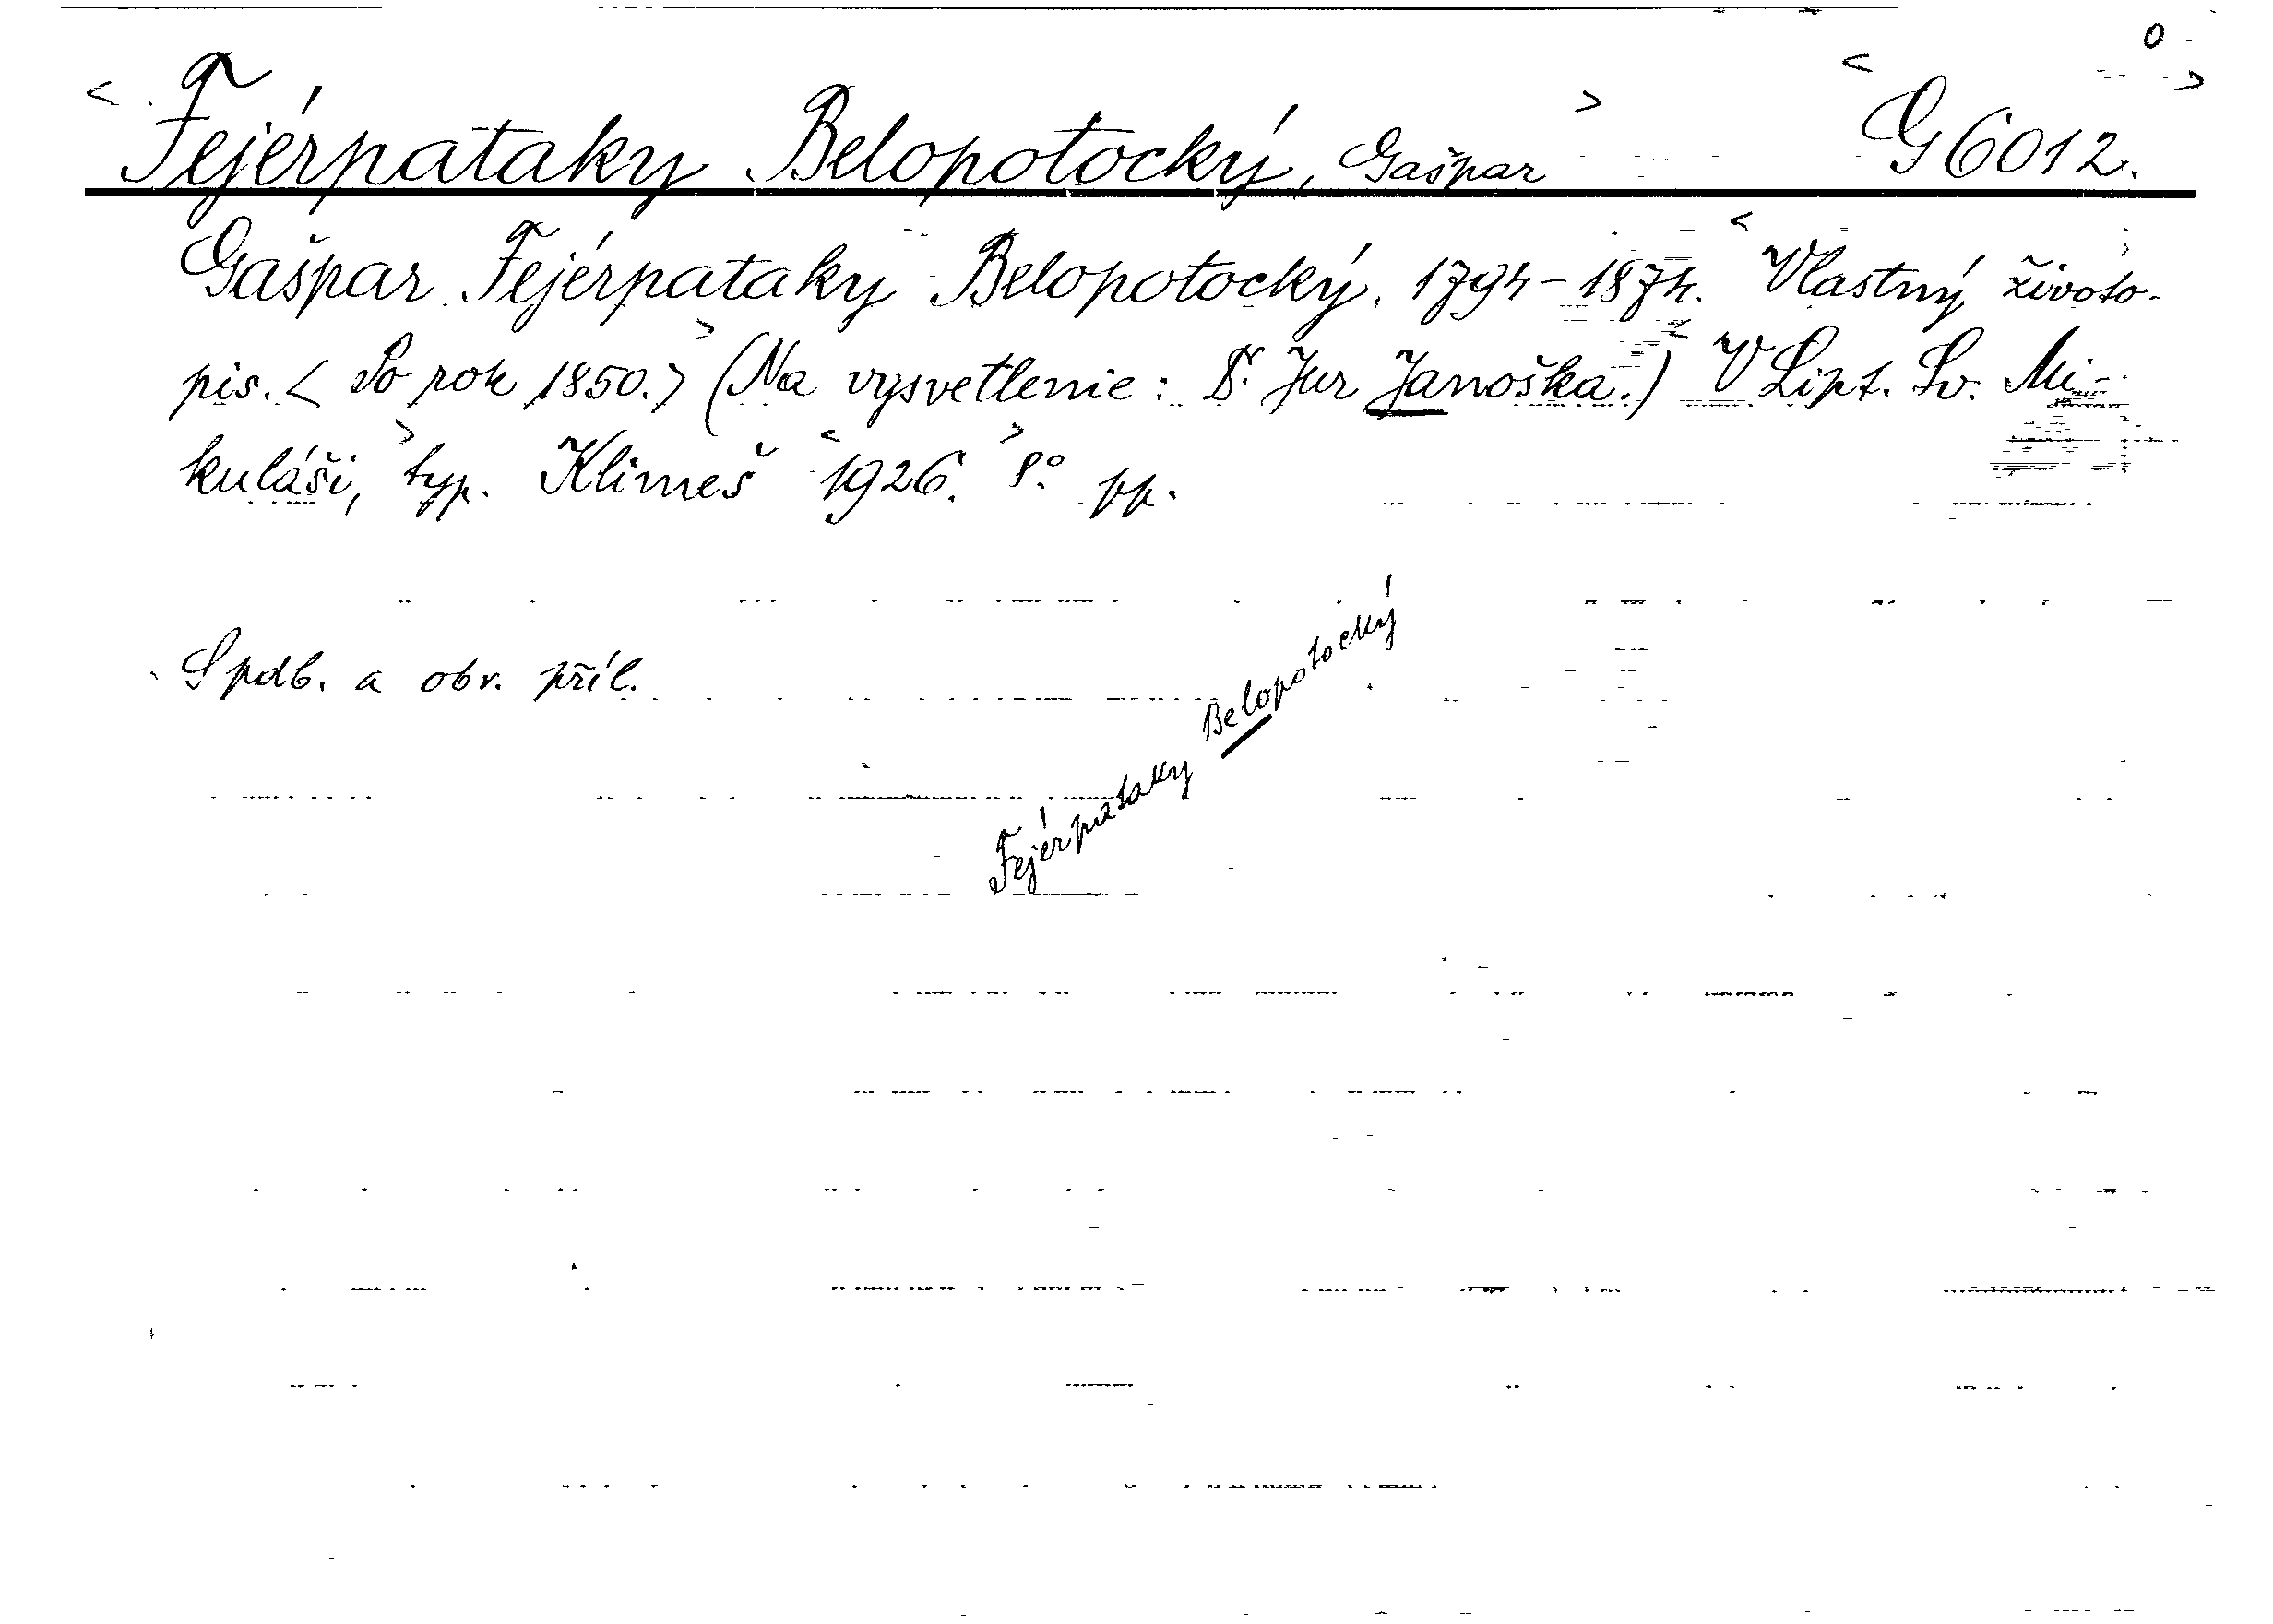 0
< Fejérpataky Belopotocký, Gašpar > < G 6012. >
Gašpar Fejérpataky Belopotocký. 1794-1874. < Vlastný životo-
pis. < Po rok 1850. > > (Na vysvetlenie: Dr. Jur Janoška.) < V Lipt. Sv. Mi-
kuláši, > typ. Klimeš < 1926. > 8° pp.
S pdb. a obr. příl.
Fejérpataky Belopotocký